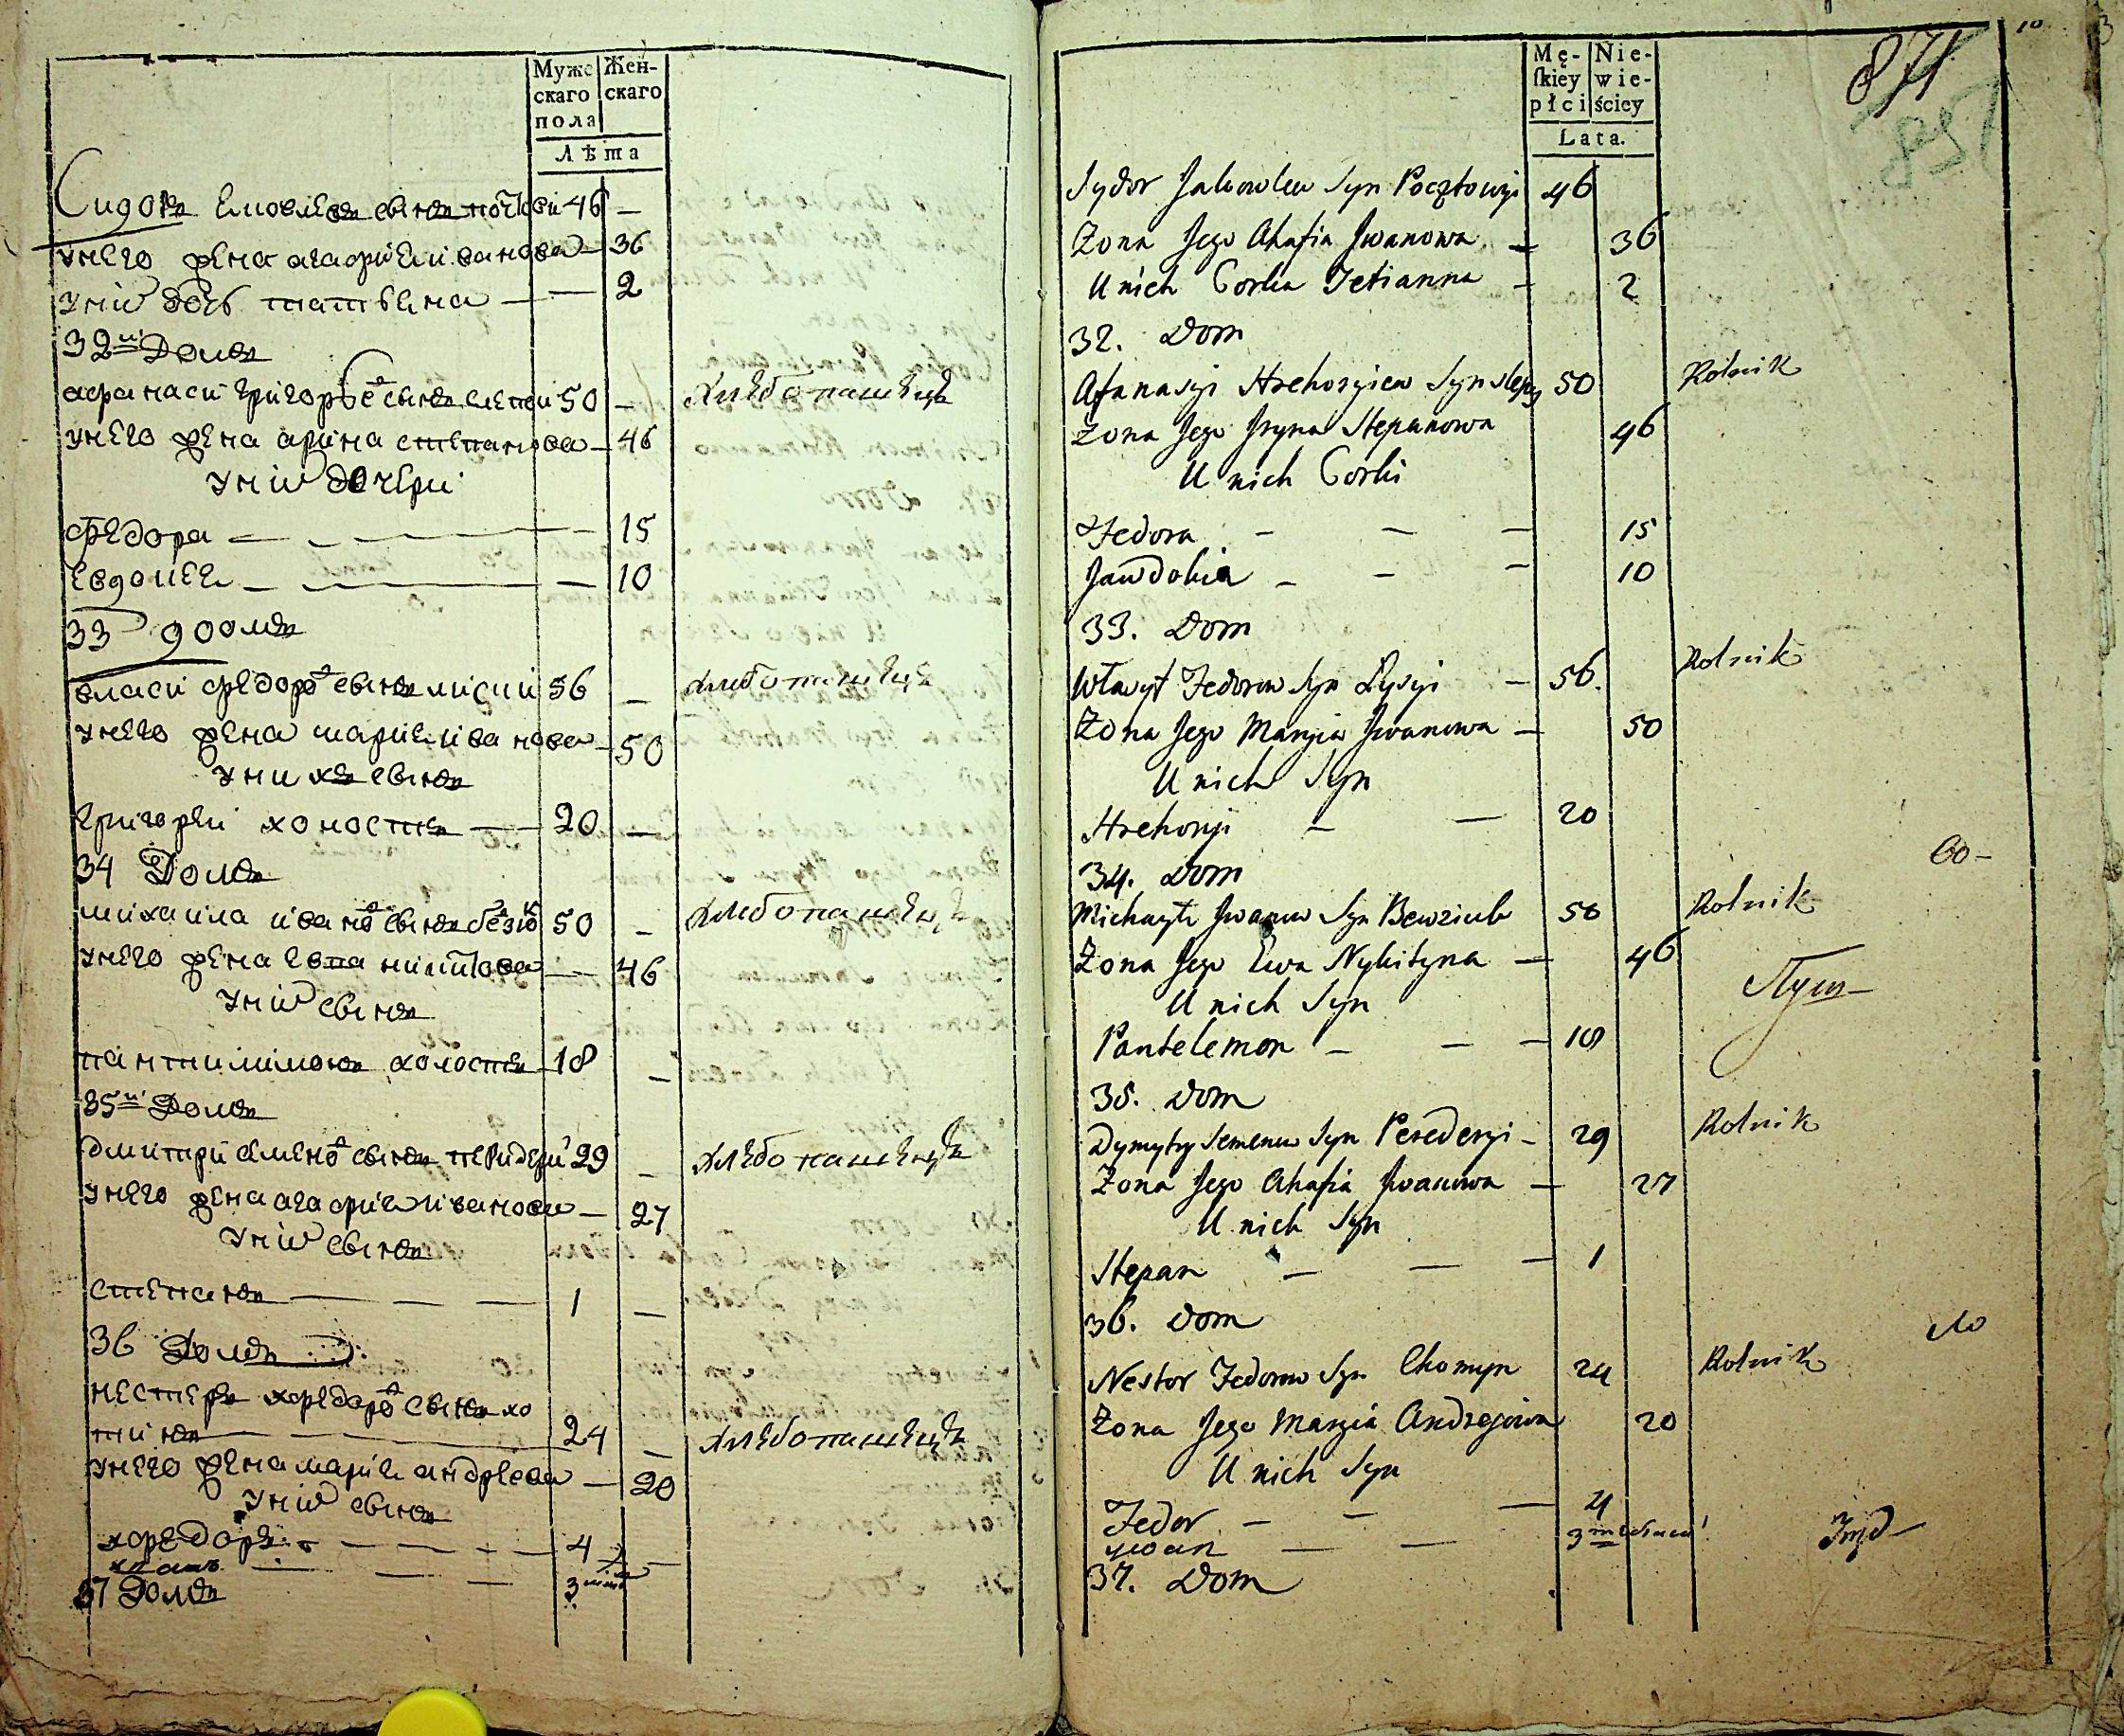 Муже
скаго
пола
Жен-
скаго
Лѣта
Сидоръ Емовлевъ сынъ почтови 46 —
унего жена агафия иванова — 36
унихъ дочь татьяна — — 2
32й Домъ
афанаси григорьевъ сынъ слепои 50 — хлѣбопашецъ
унего жена арина степанова — 46
унихъ дочери
федора — — — 15
евдокея — — — 10
33 доомъ
власи федоровъ сынъ лисии 56 — хлебопашецъ
унего жена мария иванова — 50
унихъ сынъ
григореи холостъ — — 20 —
34 Домъ
михаила ивановъ сынъ 50 — хлебопашецъ
унего жена евпа никитова — 46
унихъ сынъ
пантилимонъ холостъ — 18 —
35й Домъ
дмитри семеновъ сынъ перидери 29 — хлѣбопашецъ
унего жена агафия иванова — 27
унихъ сынъ
степанъ — — — 1 —
36 Домъ
нестеръ хведоровъ сынъ хо
минъ — 24 — хлѣбопашецъ
унего жена мария андреева — 20
унихъ сынъ
хведоръ — — — 4 —
37 Домъ
10
3
Mę-
skiey
płci
Nie-
wie-
ściey
Lata.
871
851
Sydor Jakowlew Syn Pocztowyi 46
Żona Jego Ahafia Jwanowa — 36
U nich Corka Tetianna — 2
32. Dom
Afanasyi Hrehoryiew Syn slepy 50 Rolnik
Żona Jego Jryna Stepanowa 46
U nich Corki
Fedora — — — 15
Jawdokia — — — 10
33. Dom
Własyi Fedorow Syn Łysyi — 56. Rolnik
Żona Jego Maryia Jwanowa — 50
U nich Syn
Hrehoryi — — 20
34. Dom
Michayło Jwanow Syn Bewziub 50 Rolnik
Żona Jego Ewa Nykityna — 46
U nich Syn
Pantelemon — — — 18
35. Dom
Dymytry Semenow Syn Perederyi — 29 Rolnik
Żona Jego Ahafia Jwanowa — 27
U nich Syn
Stepan — — — 1
36. Dom
Nestor Fedorow Syn Chomyn 24 Rolnik
Żona Jego Maryia Andrejowa 20
U nich Syn
Fedor — — — 4
Jwan — —
37. Dom